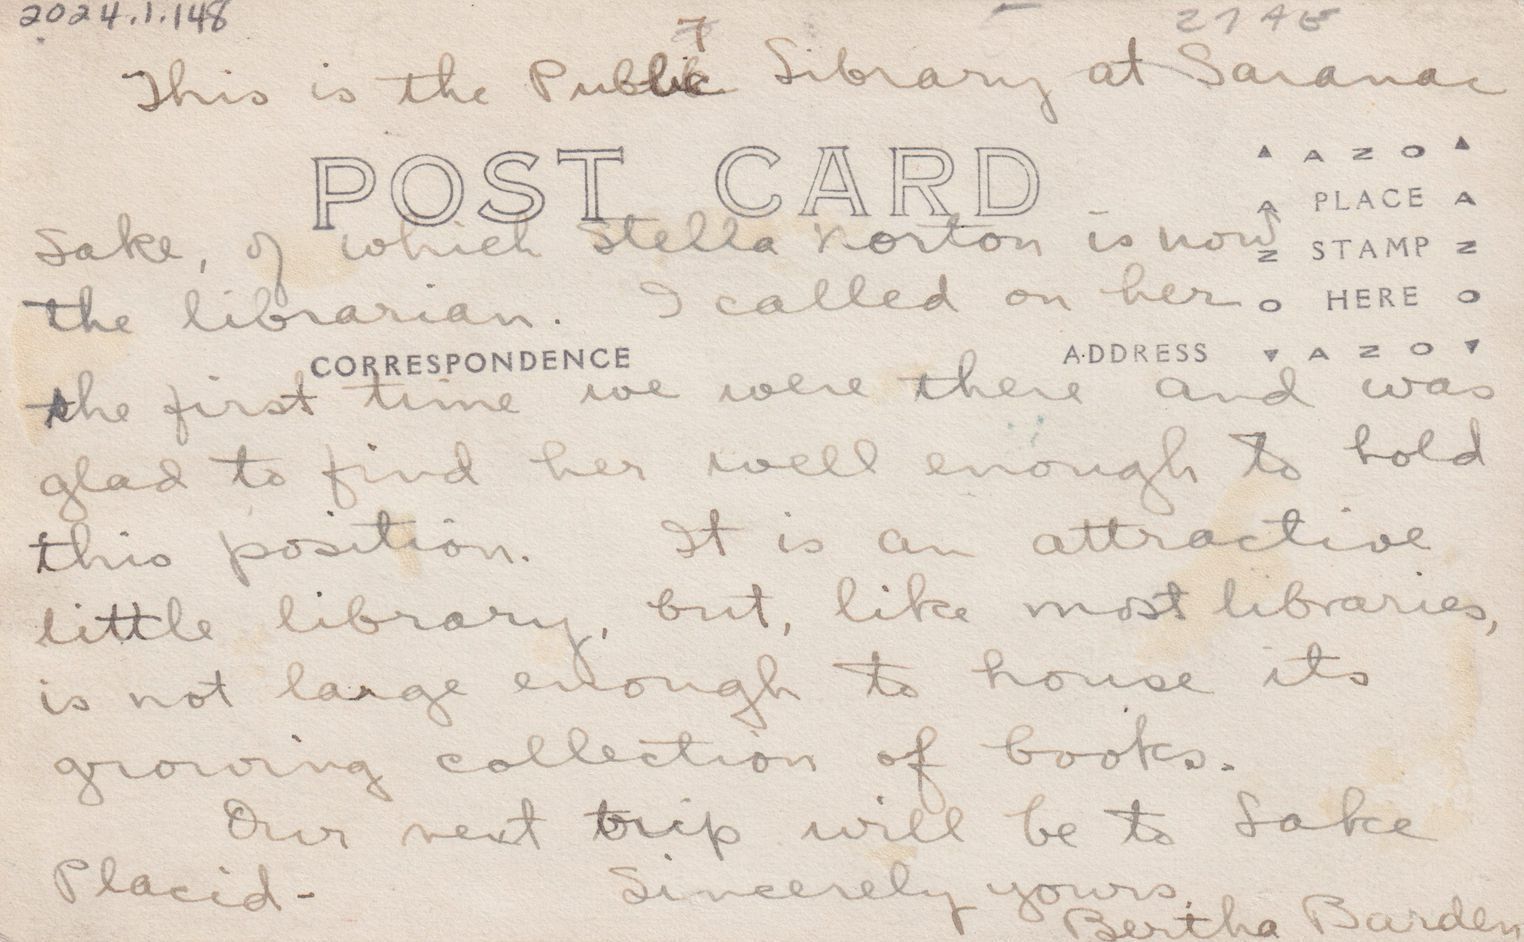 2024.1.148
27 AE
7
This is the Public Library at Saranac
POST CARD
▲ A Z O ▲
PLACE
STAMP
HERE
▼ A Z O ▼
Lake, of which Stella Norton is now
the librarian. I called on her
CORRESPONDENCE
ADDRESS
the first time we were there and was
glad to find her well enough to hold
this position. It is an attractive
little library, but, like most libraries,
is not large enough to house its
growing collection of books.
Our next trip will be to Lake
Placid-
Sincerely yours,
Bertha Barden